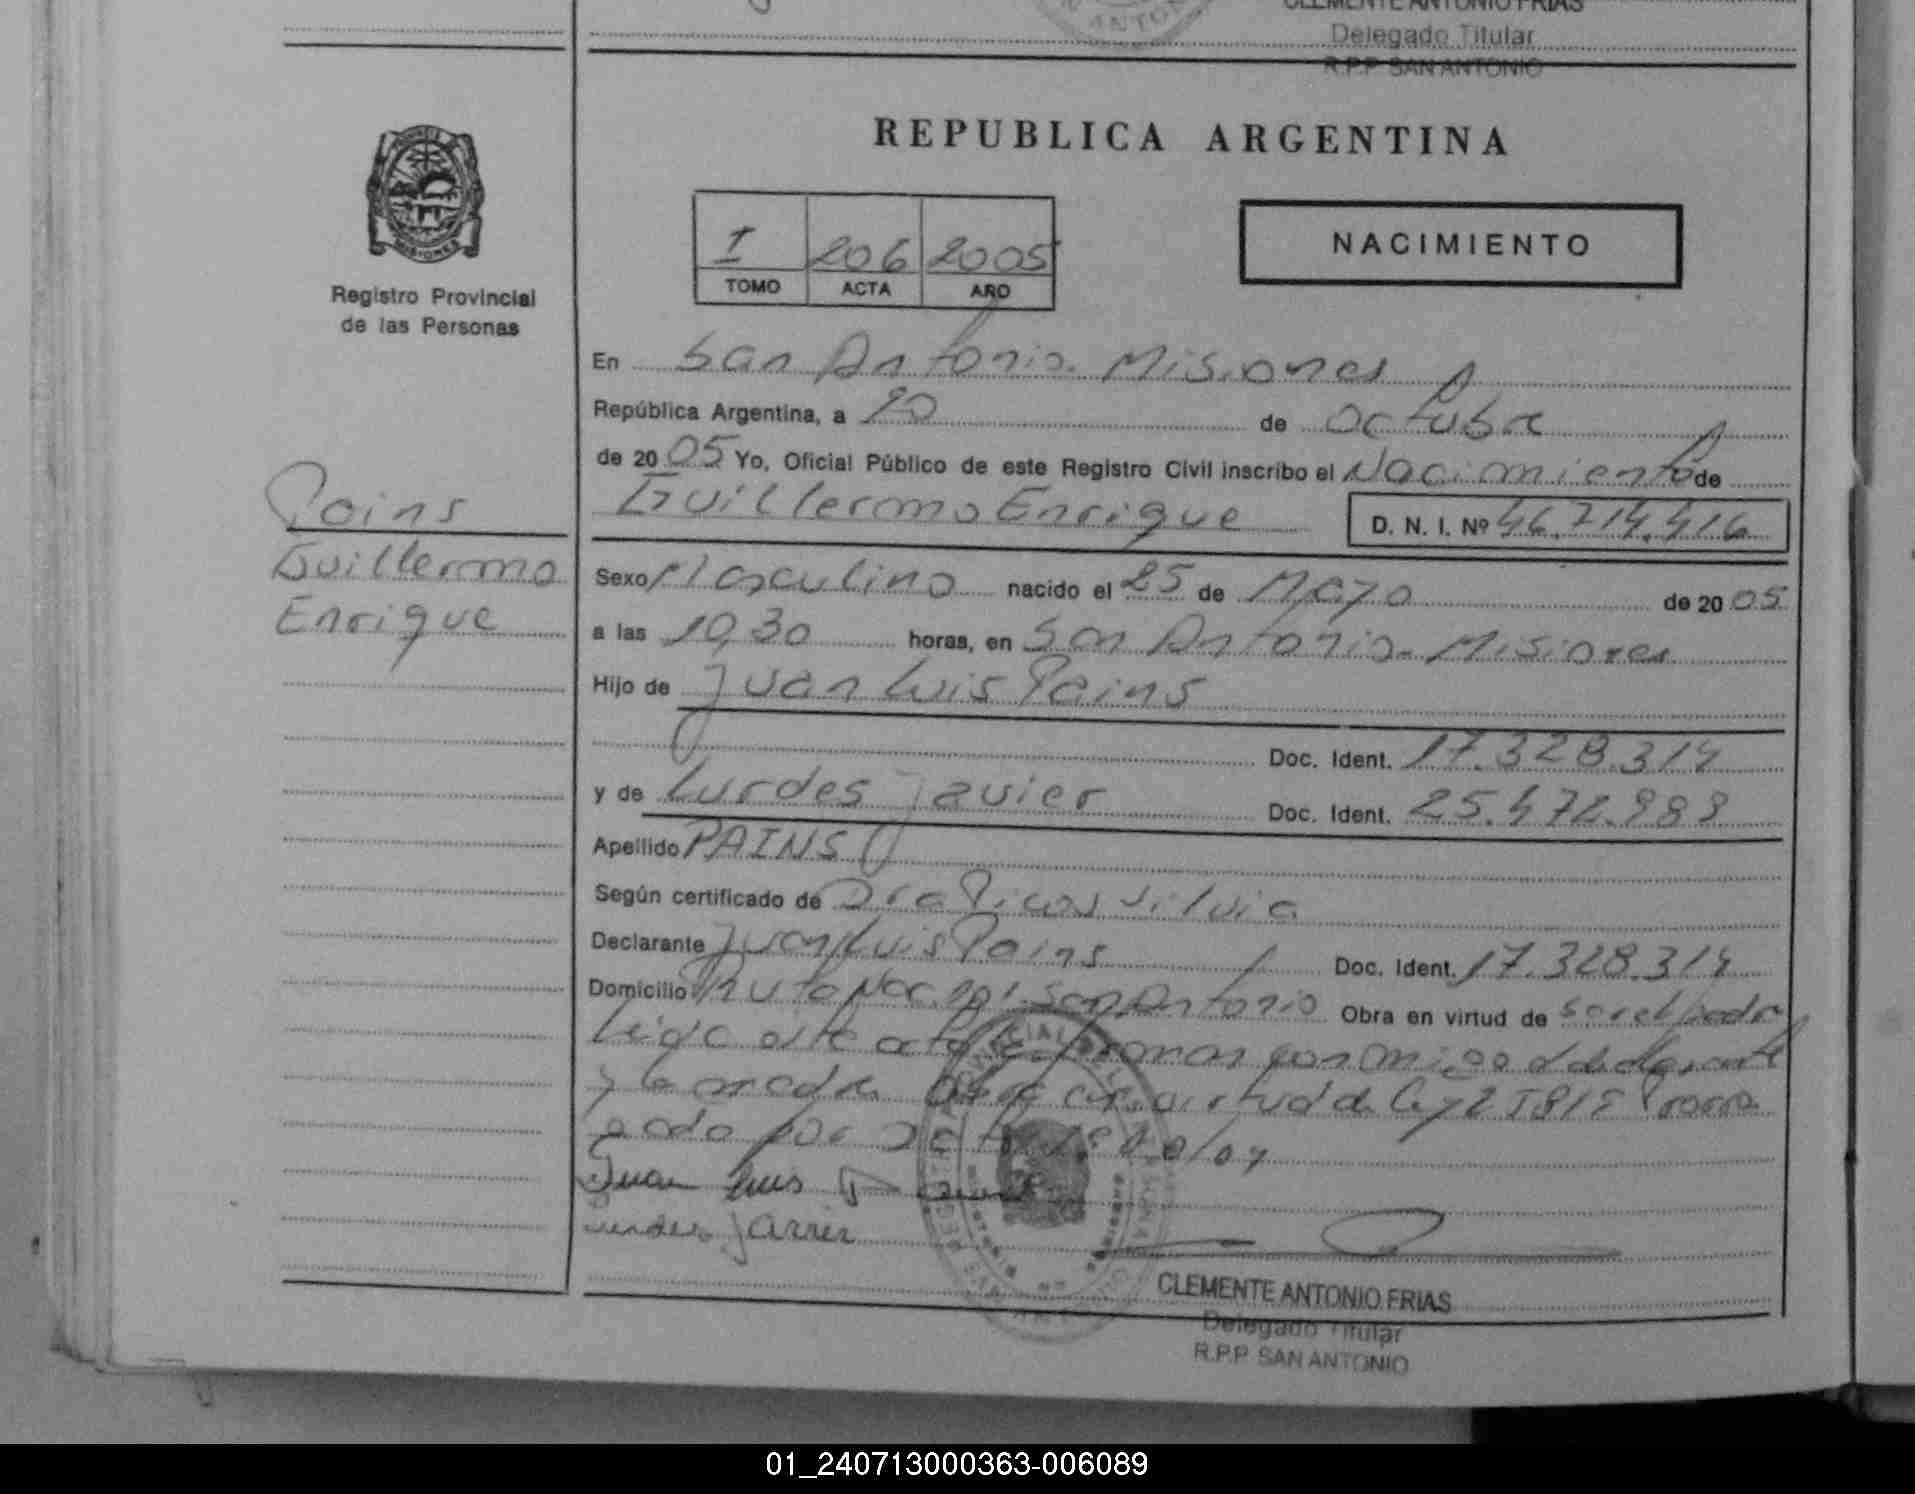 CLEMENTE ANTONIO FRIAS
Delegado Titular
R.P.P. SAN ANTONIO
ANTON
REPUBLICA ARGENTINA
MISIONES
Registro Provincial
de las Personas
I 206 2005
TOMO ACTA AÑO
NACIMIENTO
En San Antonio. Misiones
República Argentina, a 20 de octubre
de 2005 Yo, Oficial Público de este Registro Civil inscribo el Nacimiento de
Guillermo Enrique D. N. I. Nº 46.714.416
Pains
Guillermo
Enrique
Sexo Masculino nacido el 25 de Mayo de 2005
a las 10,30 horas, en San Antonio. Misiones
Hijo de Juan Luis Pains
Doc. Ident. 17.328.314
y de Lurdes Javier Doc. Ident. 25.472.989
Apellido PAINS
Según certificado de Dra Silvia
Declarante Juan Luis Pains Doc. Ident. 17.328.314
Domicilio Ruta Nac. 101 San Antonio Obra en virtud de ser el padre
Leida este acta la firman conmigo el declarante
y la madre en virtud de Ley
por
Juan Luis
CLEMENTE ANTONIO FRIAS
Delegado Titular
R.P.P. SAN ANTONIO
01_240713000363-006089